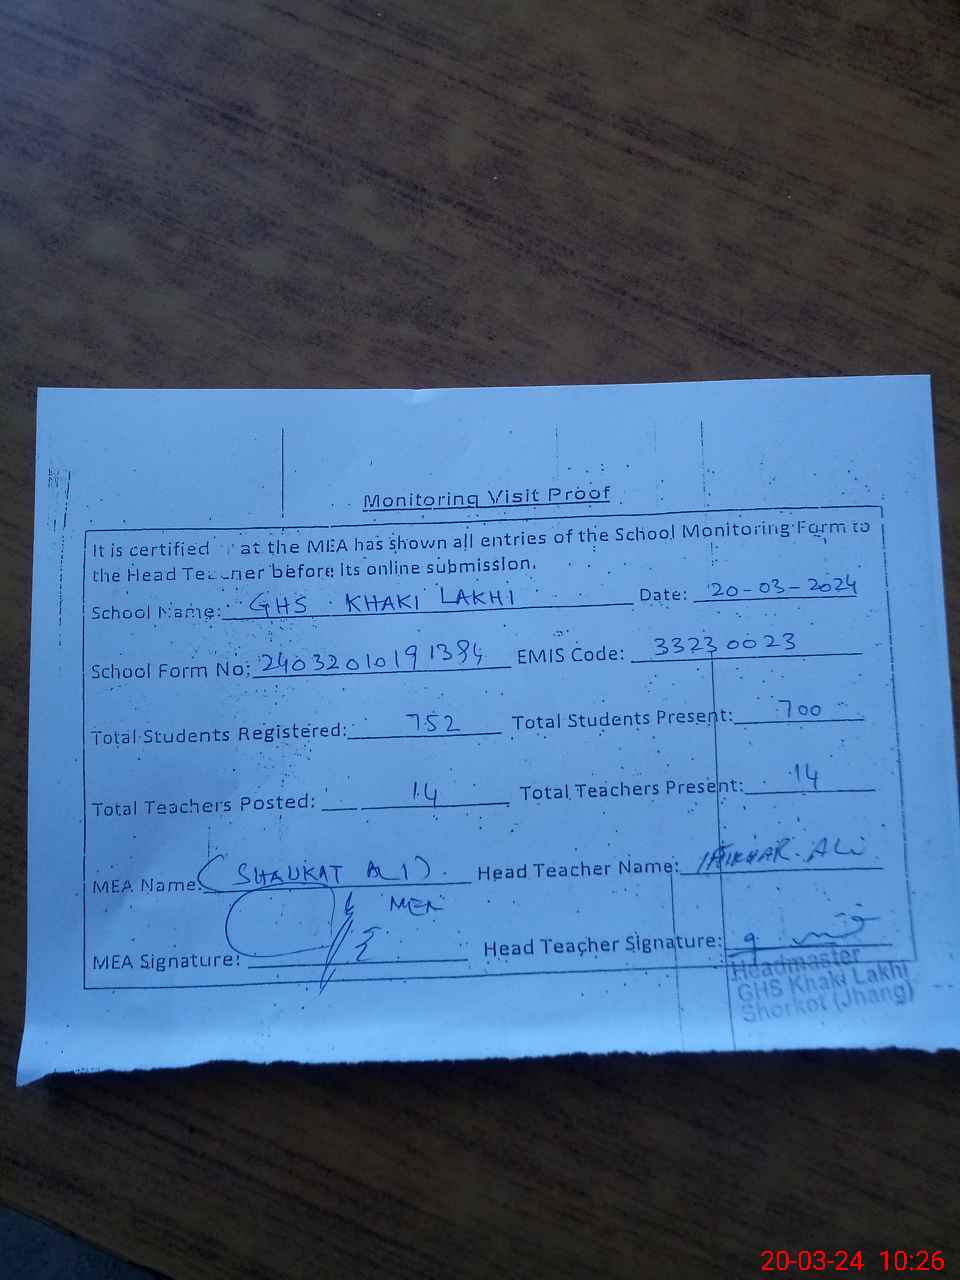 Monitoring Visit Proof
It is certified at the MEA has shown all entries of the School Monitoring Form to
the Head Teacher before its online submission.
School Name: GHS KHAKI LAKHI Date: 20-03-2024
School Form No: 24032010191384 EMIS Code: 33230023
Total Students Registered: 752 Total Students Present: 700
Total Teachers Posted: 14 Total Teachers Present: 14
MEA Name: (SHAUKAT ALI) Head Teacher Name: IFTIKHAR. ALI
MEA
MEA Signature: Head Teacher Signature:
Headmaster
GHS Khaki Lakhi
Shorkot (Jhang)
20-03-24 10:26